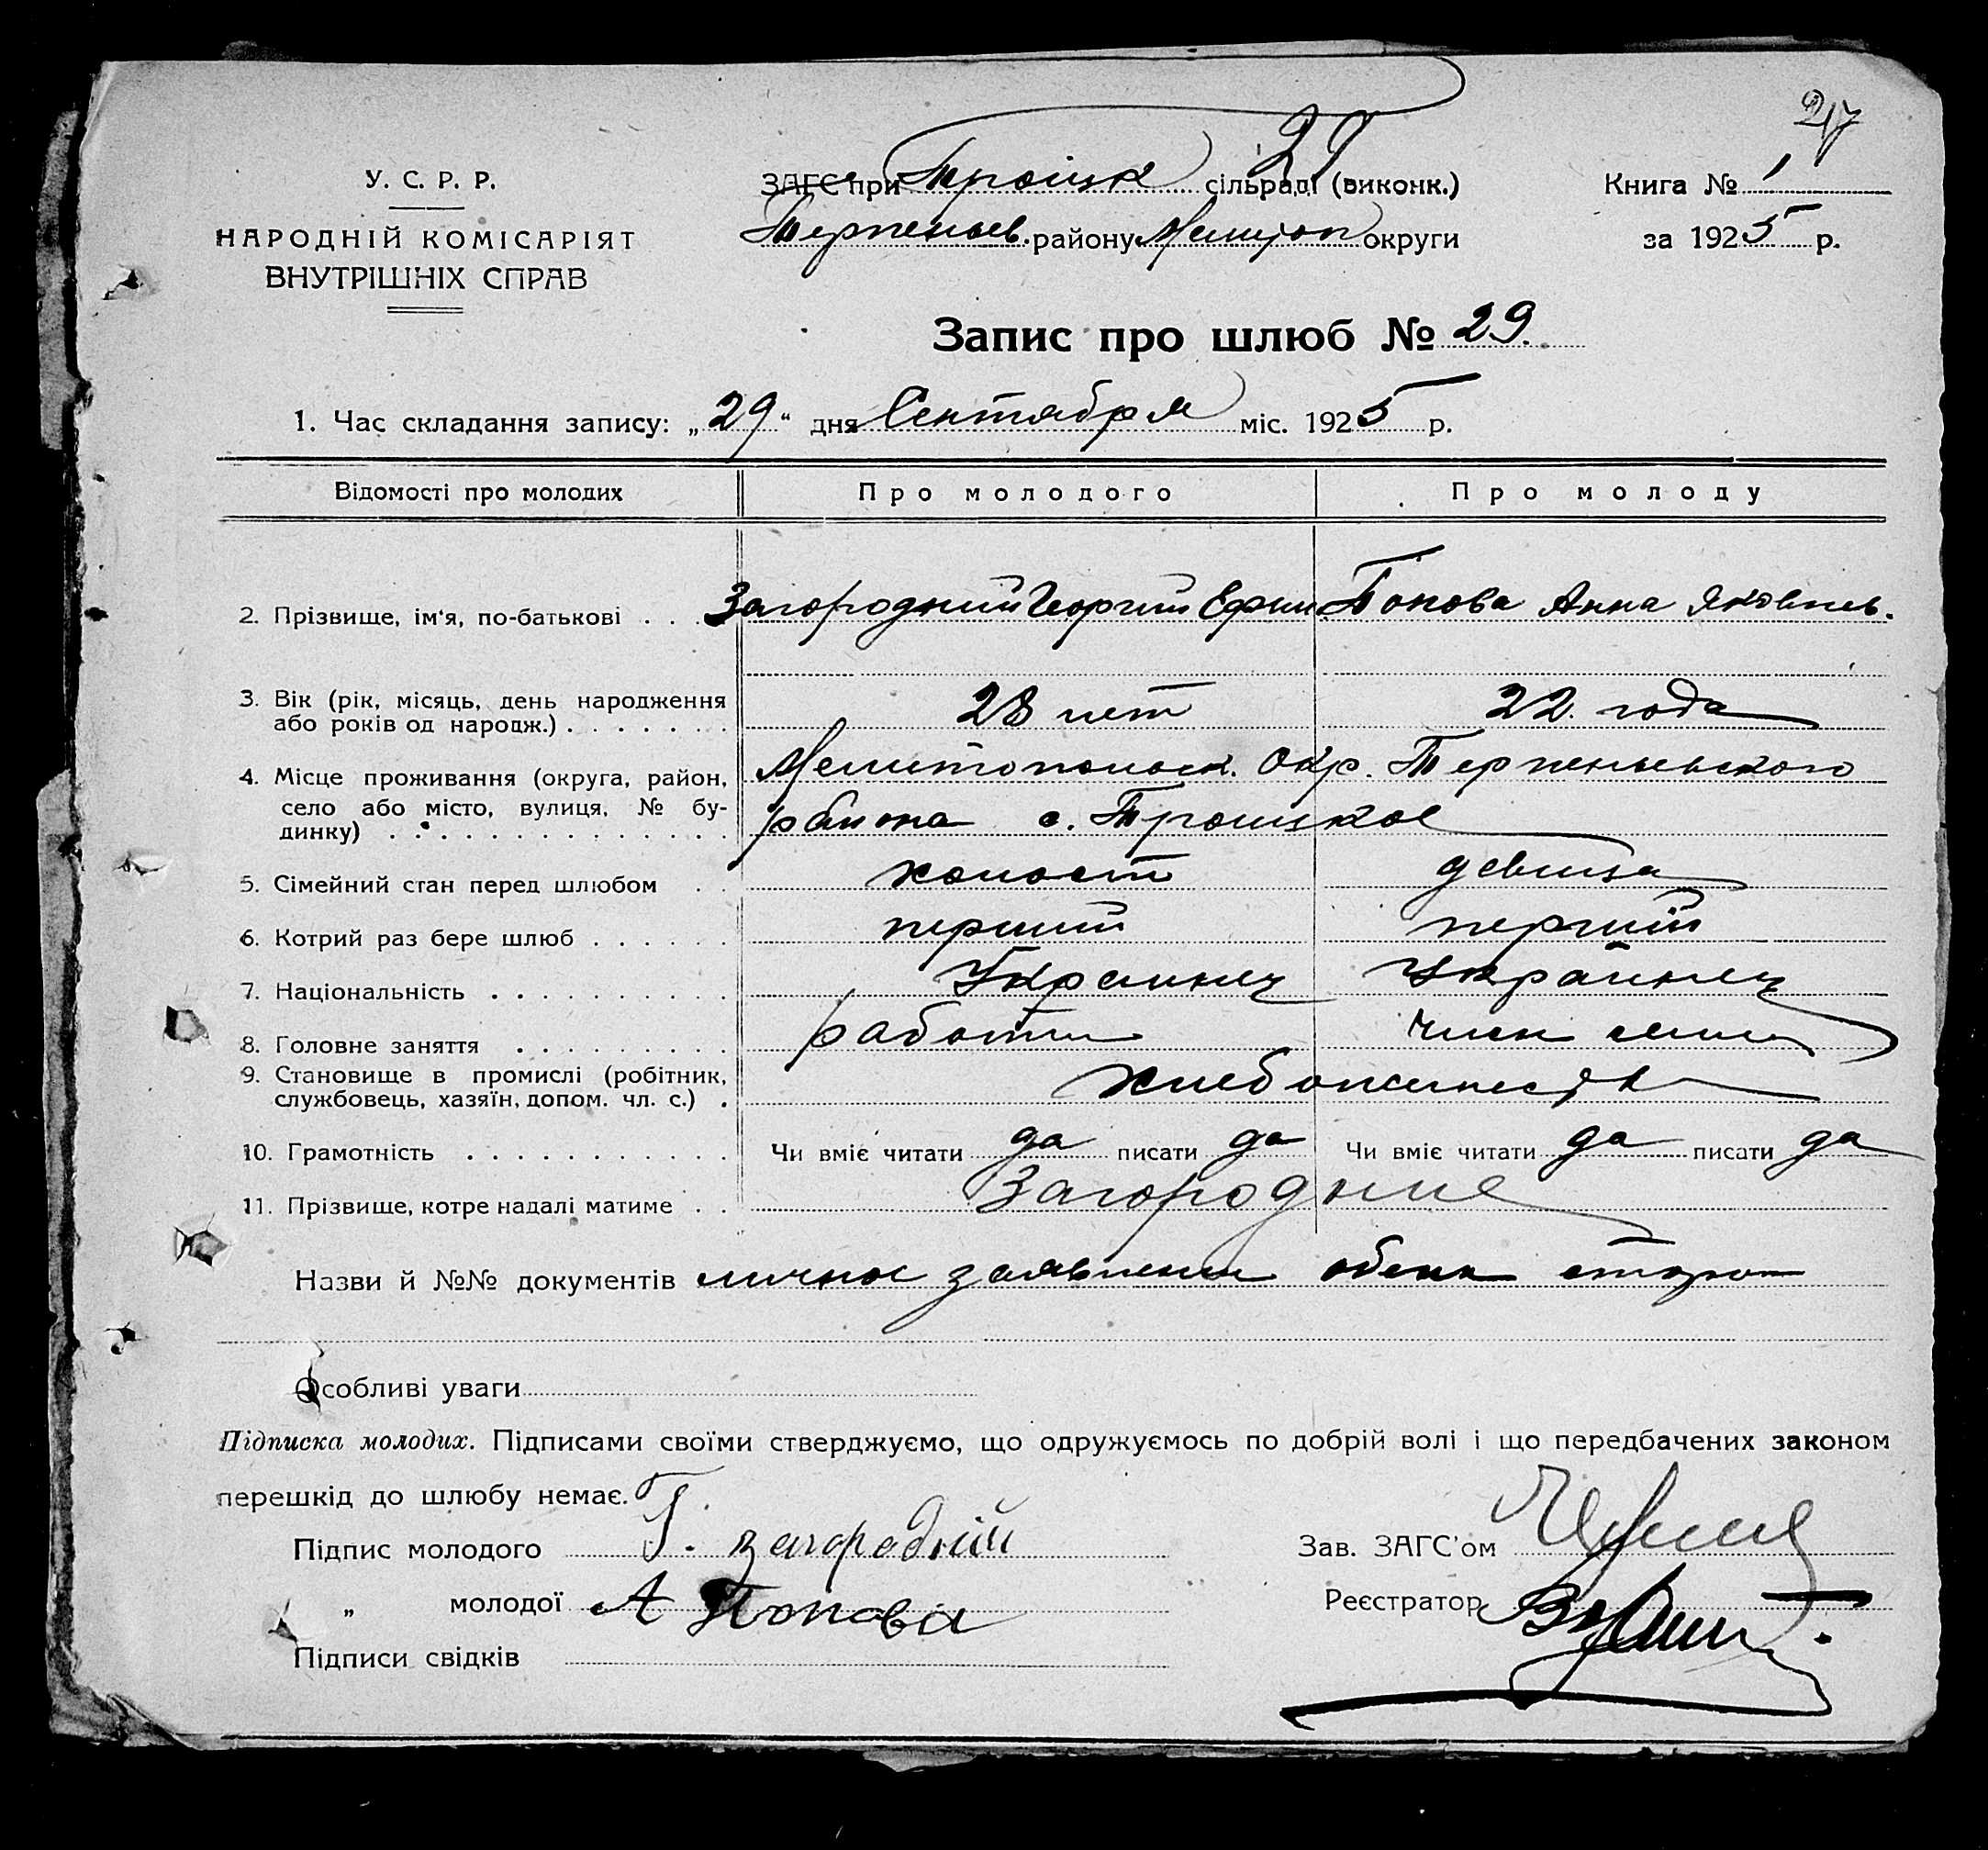 27
29
У. С. Р. Р.
ЗАГС при Троицк сільраді (виконк.) Книга № 1
НАРОДНІЙ КОМІСАРІЯТ
Терпеньев. району Мелитоп округи за 1925 р.
ВНУТРІШНІХ СПРАВ
Запис про шлюб № 29.
1. Час складання запису: „29“ дня Сентября міс. 1925 р.
Відомості про молодих Про молодого Про молоду
2. Прізвище, ім'я, по-батькові . . . Загородний Георгий Ефим. Попова Анна Яковлев.
3. Вік (рік, місяць, день народження
або років од народж.) . . . . . . . 28 лет 22. года
4. Місце проживання (округа, район, Мелитопольск. Окр. Терпеньевского
село або місто, вулиця, № бу- района с. Троицкое
динку) . . . . . . . . . . . . . .
5. Сімейний стан перед шлюбом . . холост девица
6. Котрий раз бере шлюб . . . . . . перший перший
7. Національність . . . . . . . . . . Украинец Украинец
8. Головне заняття . . . . . . . . . Член семьи
9. Становище в промислі (робітник,
службовець, хазяїн, допом. чл. с.) . хлебопашество
10. Грамотність . . . . . . . . . . . Чи вміє читати да писати да Чи вміє читати да писати да
11. Прізвище, котре надалі матиме . . Загородние
Назви й №№ документів личное заявление обеих сторон
Особливі уваги
Підписка молодих. Підписами своїми стверджуємо, що одружуємось по добрій волі і що передбачених законом
перешкід до шлюбу немає.
Підпис молодого Г. Загородний Зав. ЗАГС'ом
„ молодої А Попова Реєстратор
Підписи свідків